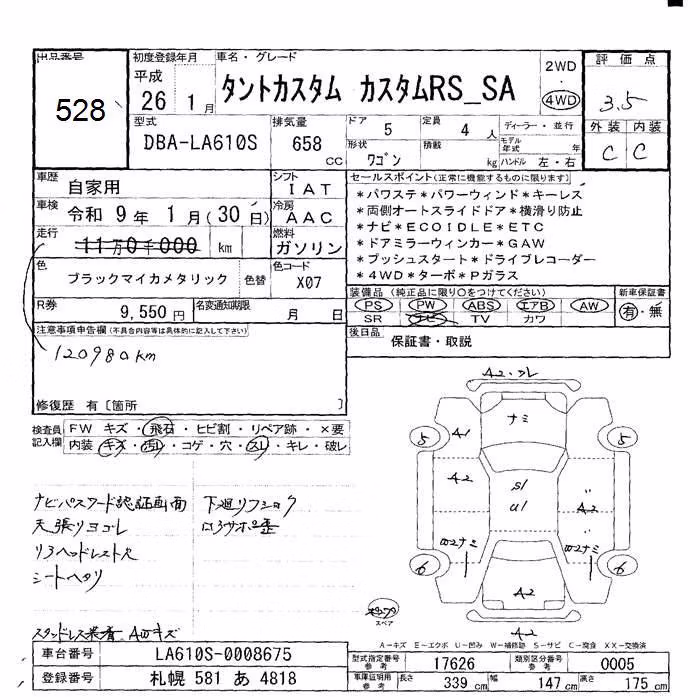 出品番号
528
初度登録年月
平成
26 1月
車名・グレード
タントカスタム カスタムRS_SA
2WD
・
4WD
評価点
3.5
外装 内装
C C
型式
DBA-LA610S
排気量
658
CC
ドア 5
定員 4 人
ディーラー・並行
形状 ワゴン
積載 kg
モデル年式 年
ハンドル 左・右
車歴 自家用
シフト IAT
車検 令和 9年 1月(30日)
冷房 AAC
走行 11万0千000 km
燃料 ガソリン
色 ブラックマイカメタリック 色替
色コード X07
R券 9,550円
名変通知期限 月 日
セールスポイント(正常に機能するものに限ります)
*パワステ*パワーウィンド*キーレス
*両側オートスライドドア*横滑り防止
*ナビ*ECOIDLE*ETC
*ドアミラーウィンカー*GAW
*プッシュスタート*ドライブレコーダー
*4WD*ターボ*Pガラス
装備品(純正品に限り○をつけてください)
PS PW ABS エアB AW
SR ナビ TV カワ
新車保証書
有・無
後日品 保証書・取説
注意事項申告欄(不具合内容等は具体的に記入して下さい)
120980km
修復歴 有[箇所 ]
検査員記入欄
FW キズ・飛石・ヒビ割・リペア跡・×要
内装・キズ・汚レ・コゲ・穴・スレ・キレ・破レ
ナビパスワード認証画面 下廻リフショク
天張リヨゴレ ロアサポ歪
リアヘッドレストスレ
シートヘタリ
スタッドレス装着 AWキズ
A2・スレ
ナミ
5 A1 5
A2 S1 〃
U1 A2
W2ナミ W2ナミ
6 6
A2
A2
スペア
A-キズ E-エクボ U-凹み W-補修跡 S-サビ C-腐食 XX-交換済
車台番号 LA610S-0008675
登録番号 札幌 581 あ 4818
型式指定番号 参考 17626
類別区分番号 参考 0005
車庫証明用 参考 長さ 339cm 幅 147cm 高さ 175cm